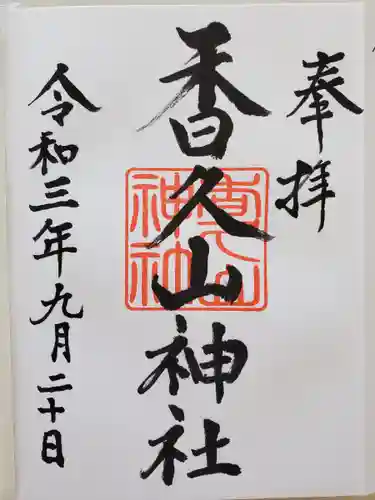 奉拝
香久山神社
香久山神社
令和三年九月二十日